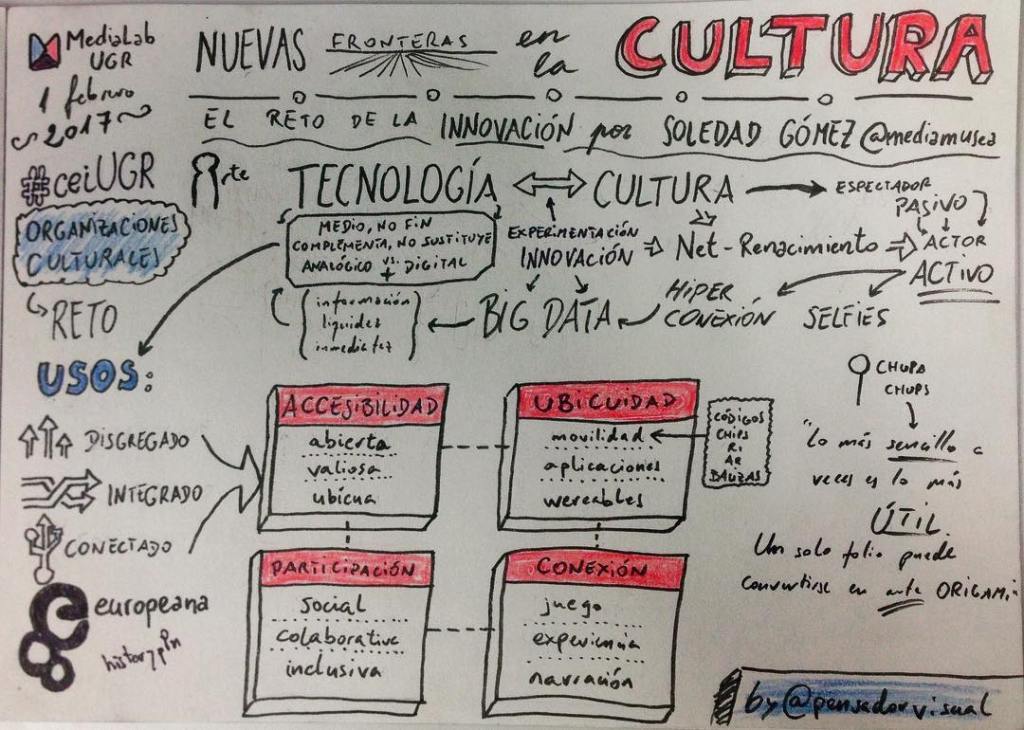 MediaLab
UGR
1 febrero
2017
NUEVAS FRONTERAS en
la
CULTURA
EL RETO DE LA INNOVACIÓN por SOLEDAD GÓMEZ @mediamusea
#ceiUGR
ORGANIZACIONES
CULTURALES
RETO
USOS:
DISGREGADO
INTEGRADO
CONECTADO
europeana
historypin
Arte
TECNOLOGÍA
CULTURA
ESPECTADOR
PASIVO
MEDIO, NO FIN
COMPLEMENTA, NO SUSTITUYE
ANALÓGICO vs. + DIGITAL
EXPERIMENTACIÓN
INNOVACIÓN
Net-Renacimiento
ACTOR
ACTIVO
información
liquidez
inmediatez
BIG DATA
HIPER
CONEXIÓN
SELFIES
ACCESIBILIDAD
abierta
valiosa
ubicua
UBICUIDAD
movilidad
aplicaciones
wereables
CÓDIGOS
CHIPS
RI
AR
PARTICIPACIÓN
social
colaborative
inclusiva
CONEXIÓN
juego
experiencia
narración
CHUPA
CHUPS
"Lo más sencillo a
veces es lo más
ÚTIL
Un solo folio puede
convertirse en arte ORIGAMI
by @pensadorvisual